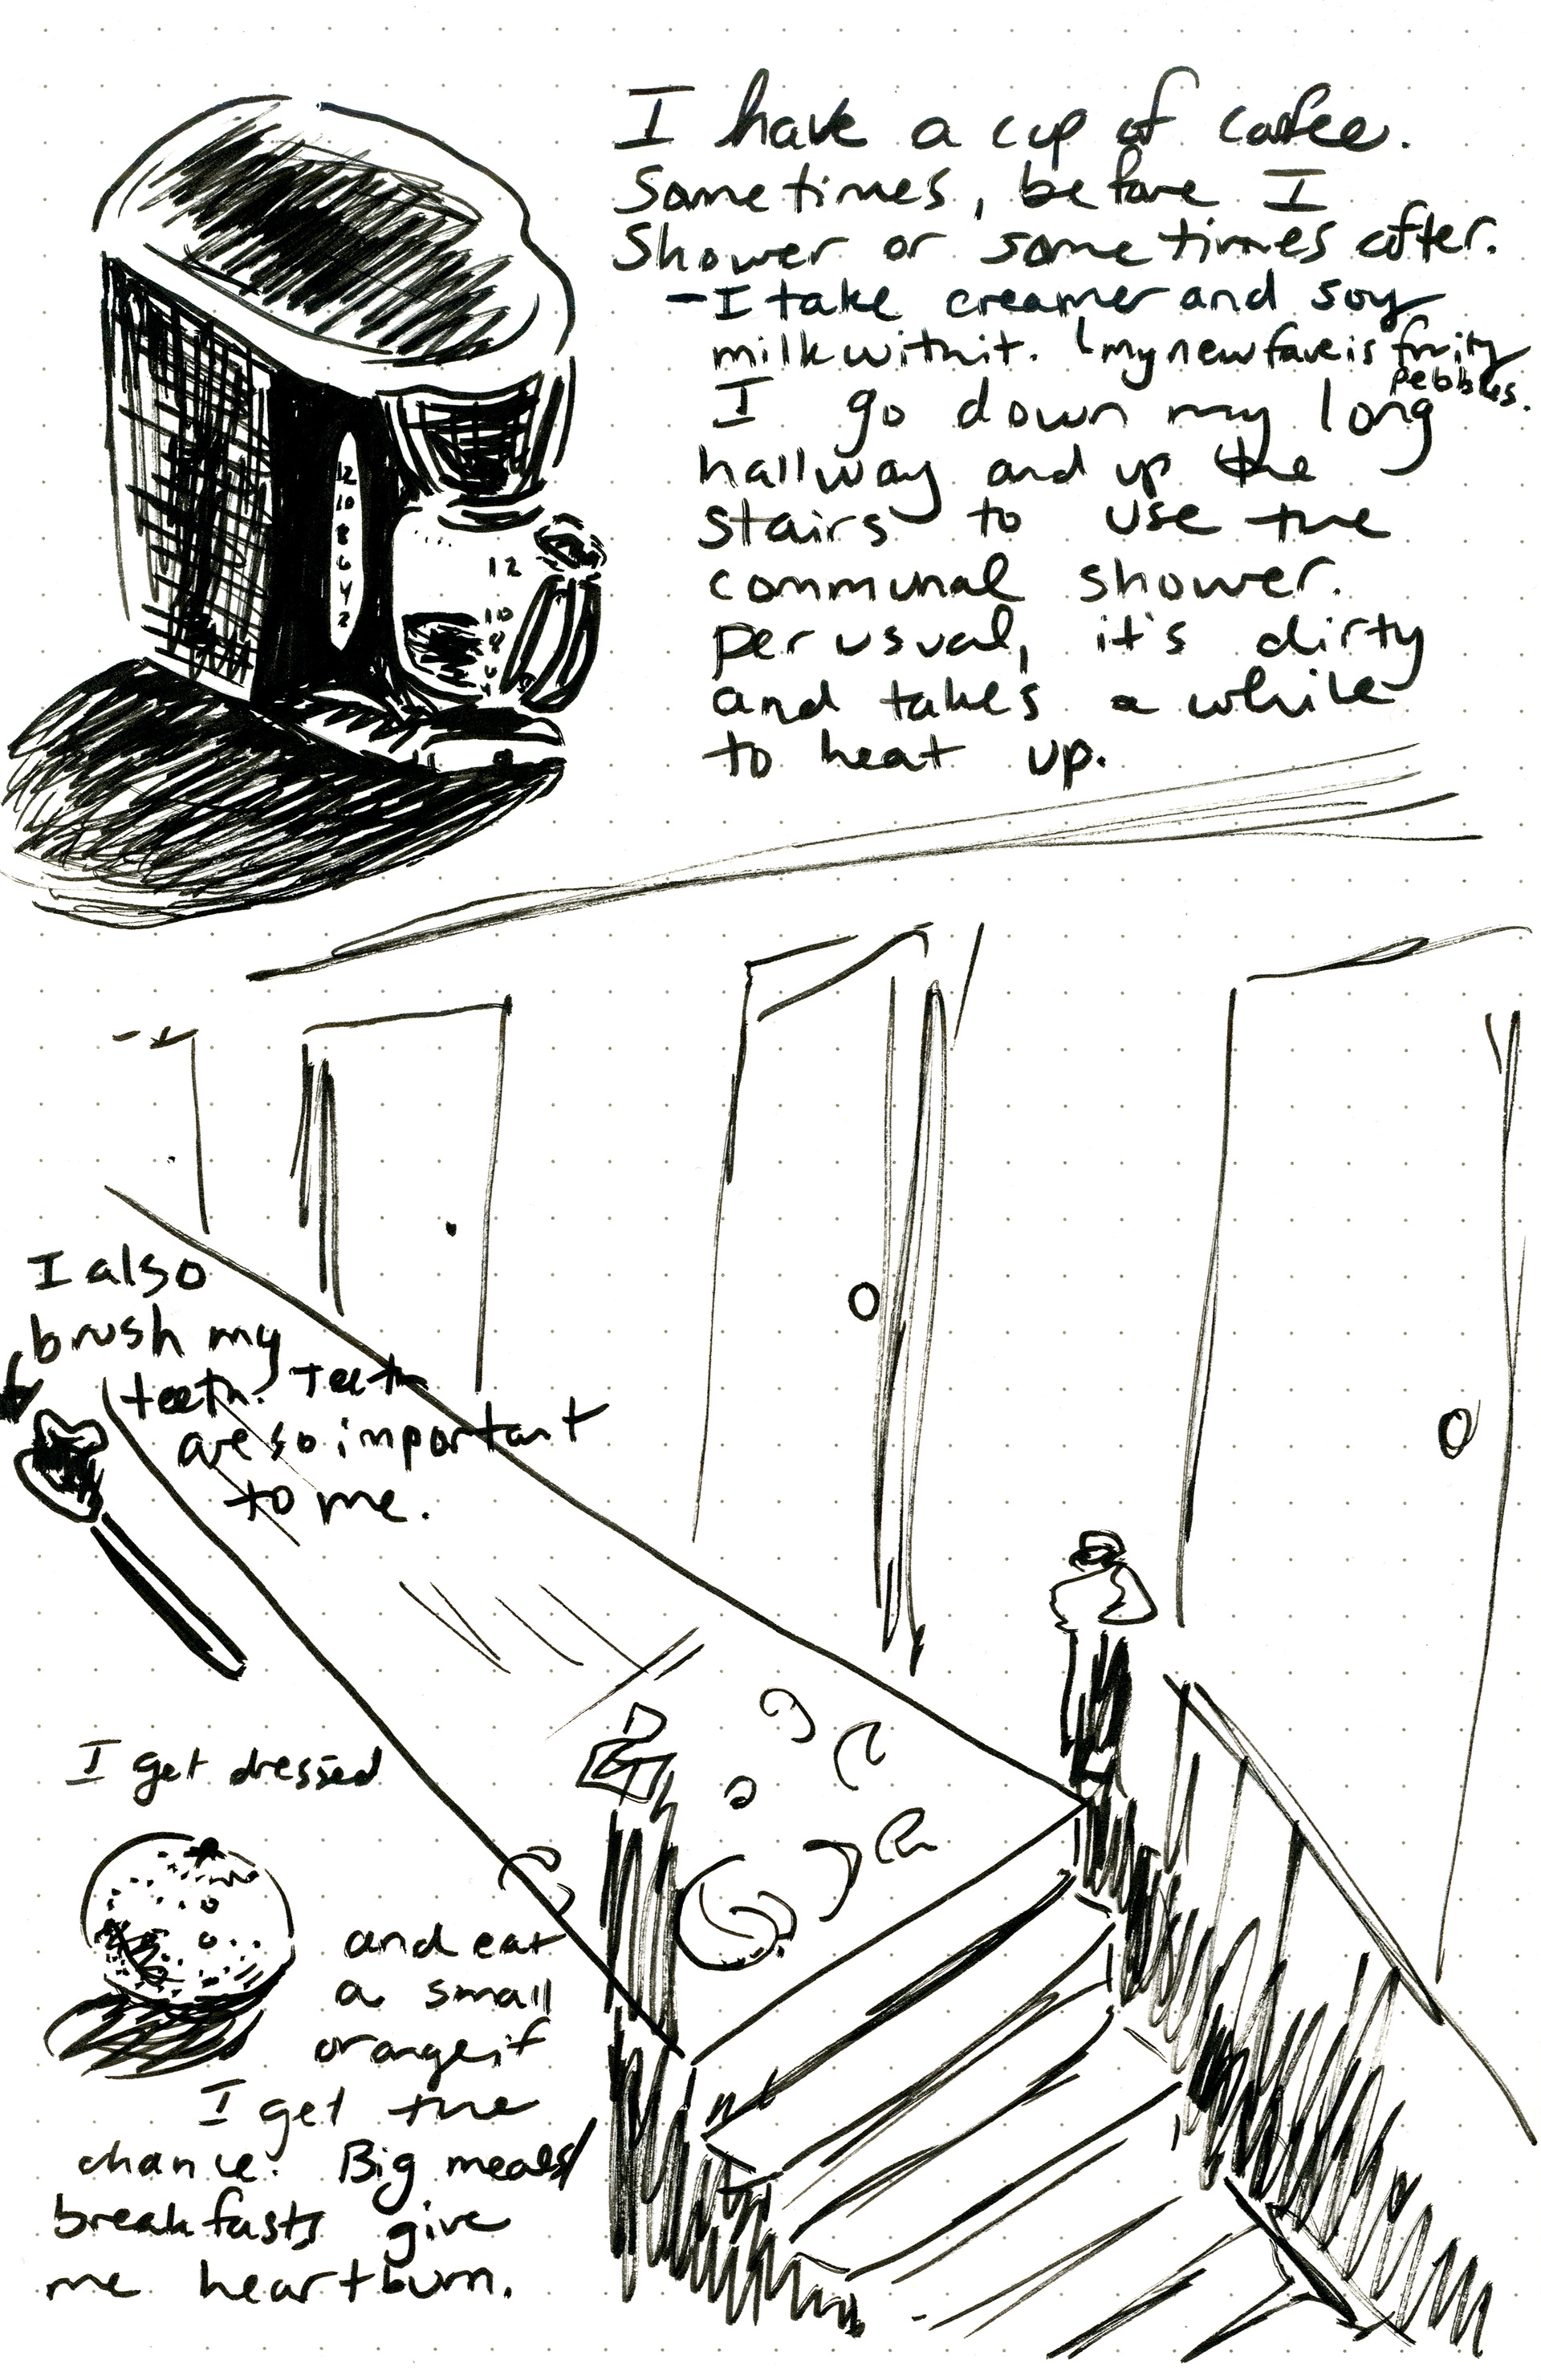 I have a cup of cofee.
Sometimes, before I
Shower or sometimes after.
-I take creamer and soy
milk with it. my new fave is fruity
pebbles.
I go down my long
hallway and up the
stairs to use the
communal shower.
per usual, it's dirty
and takes a while
to heat up.
12
10
8
6
4
2
12
10
8
6
4
I also
brush my
teeth. Teeth
are so important
to me.
I get dressed
and eat
a small
orange if
I get the
chance. Big meals/
breakfasts give
me heartburn.